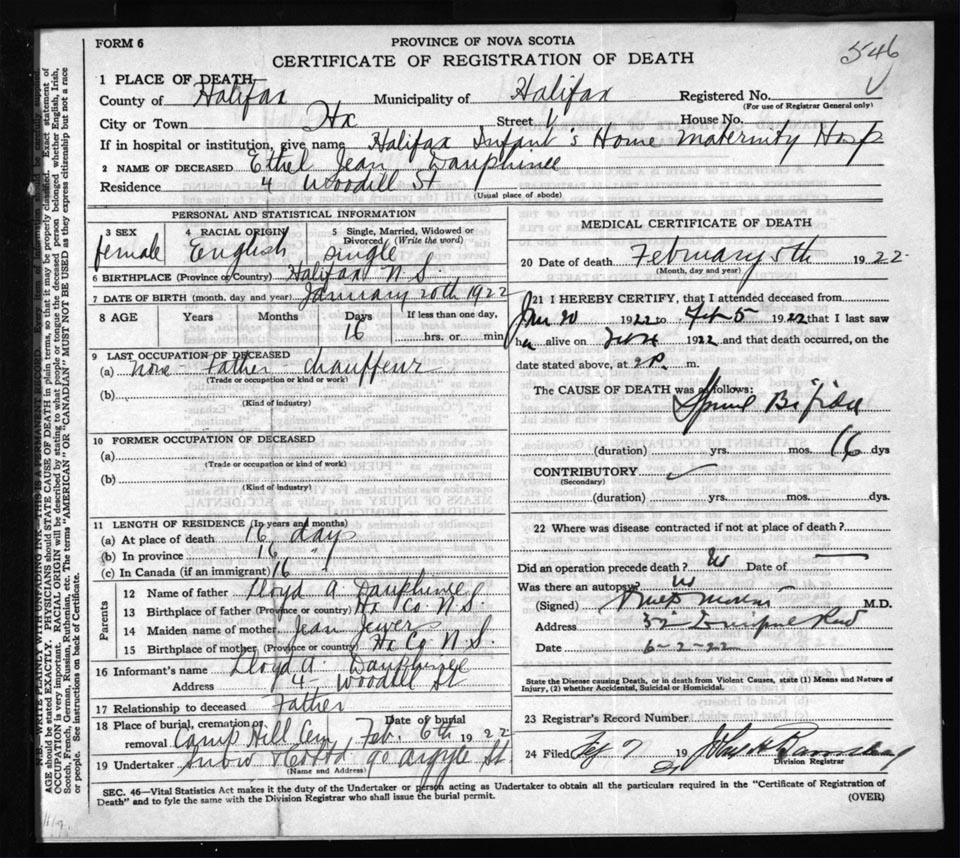 FORM 6
PROVINCE OF NOVA SCOTIA
546
CERTIFICATE OF REGISTRATION OF DEATH
1 PLACE OF DEATH
County of Halifax Municipality of Halifax Registered No.
(For use of Registrar General only)
City or Town Hx Street House No.
If in hospital or institution, give name Halifax Infant's Home Maternity Hosp
2 NAME OF DECEASED Ethel Jean Dauphinee
Residence 4 Woodill St
(Usual place of abode)
PERSONAL AND STATISTICAL INFORMATION
3 SEX female 4 RACIAL ORIGIN English 5 Single, Married, Widowed or Divorced (Write the word) single
6 BIRTHPLACE (Province or Country) Halifax N.S.
7 DATE OF BIRTH (month, day and year) January 20th 1922
8 AGE Years Months Days 16 If less than one day, hrs. or min
9 LAST OCCUPATION OF DECEASED
(a) none - Father - chauffeur
(Trade or occupation or kind or work)
(b)
(Kind of industry)
10 FORMER OCCUPATION OF DECEASED
(a)
(Trade or occupation or kind or work)
(b)
(Kind of industry)
11 LENGTH OF RESIDENCE (In years and months)
(a) At place of death 16 days
(b) In province 16 "
(c) In Canada (if an immigrant) 16
Parents
12 Name of father Lloyd A Dauphinee
13 Birthplace of father (Province or country) Hx Co N.S.
14 Maiden name of mother Jean Jewers
15 Birthplace of mother (Province or country) Hx Co N.S.
16 Informant's name Lloyd A. Dauphinee
Address 4 - Woodill St
17 Relationship to deceased Father
18 Place of burial, cremation or removal Camp Hill Cem Date of burial Feb. 6th 1922
19 Undertaker Snow 90 Argyle St
(Name and Address)
MEDICAL CERTIFICATE OF DEATH
20 Date of death February 5th 1922
(Month, day and year)
21 I HEREBY CERTIFY, that I attended deceased from
Jan 20 1922 to Feb 5 1922 that I last saw
h alive on Feb 4 1922 and that death occurred, on the
date stated above, at 2 P. m.
The CAUSE OF DEATH was as follows:
Spina Bifida
(duration) yrs. mos. 16 dys
CONTRIBUTORY
(Secondary)
(duration) yrs. mos. dys.
22 Where was disease contracted if not at place of death?
Did an operation precede death? No Date of
Was there an autopsy? No
(Signed) M.D.
Address
Date 6-2-22
State the Disease causing Death, or in death from Violent Causes, state (1) Means and Nature of
Injury, (2) whether Accidental, Suicidal or Homicidal.
23 Registrar's Record Number
24 Filed 19
Division Registrar
SEC. 46—Vital Statistics Act makes it the duty of the Undertaker or person acting as Undertaker to obtain all the particulars required in the "Certificate of Registration of
Death" and to fyle the same with the Division Registrar who shall issue the burial permit.
(OVER)
N.B. WRITE PLAINLY WITH UNFADING INK—THIS IS A PERMANENT RECORD. Every item of information should be carefully supplied.
AGE should be stated EXACTLY. PHYSICIANS should STATE CAUSE OF DEATH in plain terms, so that it may be properly classified. Exact statement of
OCCUPATION is very important. RACIAL ORIGIN will be described by stating to what people or tongue the deceased person belonged whether English, Irish,
Scotch, French, German, Russian, Ruthenian, etc. The terms "AMERICAN" OR "CANADIAN" MUST NOT BE USED as they express citizenship but not a race
or people. See instructions on back of Certificate.